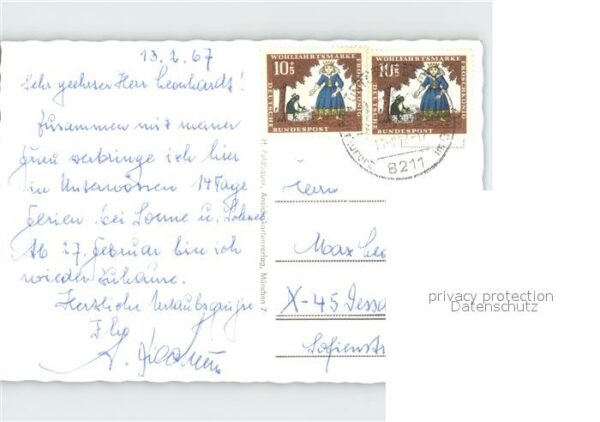 13.2.67
Sehr geehrter Herr Leonhardt!
Zusammen mit meiner
Frau verbringe ich hier
in Unterwössen 14 Tage
Ferien bei Sonne u. Schnee
Ab 27. Februar bin ich
wieder zuhause.
Herzliche Urlaubsgrüße
Ihr
A.
10+5
WOHLFAHRTSMARKE
FROSCHKÖNIG
DEUTSCHE
BUNDESPOST
10+5
WOHLFAHRTSMARKE
FROSCHKÖNIG
DEUTSCHE
BUNDESPOST
8211
Ansichtskartenverlag, München 7
Herrn
Max Leo
X-45 Dessa
Sofienst
privacy protection
Datenschutz